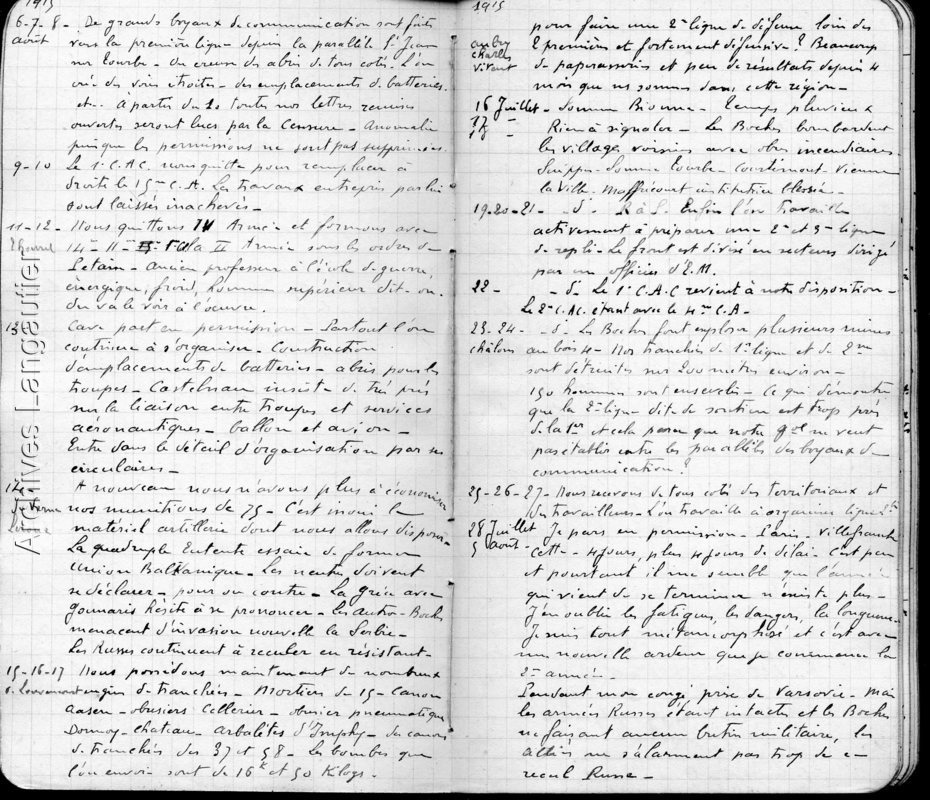 1915
6-7-8- De grands boyaux de communication sont faits
août vers la première ligne depuis la parallèle St Jean
sur Tourbe - On creuse des abris de tous cotés. L'on
crée des voies étroites - des emplacements de batteries.
etc. A partir du 10 toutes nos lettres remises
ouvertes seront lues par la Censure - Anomalie
puisque les permissions ne sont pas supprimées.
9-10 Le 1er C.A.C. nous quitte pour remplacer à
droite le 15me C.A. Les travaux entrepris par lui
sont laissés inachevés -
11-12- Nous quittons IV Armée et formons avec
14- 11- la II Armée sous les ordres de
Petain - Ancien professeur à l'école de guerre,
énergique, froid, homme supérieur dit-on.
On va le voir à l'oeuvre.
13 Cave part en permission - Partout l'on
continue à s'organiser - Construction
d'emplacements de batteries - abris pour les
troupes - Castelnau insiste de très près
sur la liaison entre troupes et services
aeronautiques - ballon et avion -
Entre dans le détail d'organisation par ses
circulaires -
14 A nouveau nous n'avons plus à économiser
nos munitions de 75 - C'est inouï le
matériel artillerie dont nous allons disposer -
La quadruple Entente essaie de former
Union Balkanique - Les neutres doivent
se déclarer - pour ou contre - La Grèce avec
Gounaris hésite à se prononcer - Les Austro-Boches
menacent d'invasion nouvelle la Serbie -
Les Russes continuent à reculer en résistant -
15-16-17 Nous possédons maintenant de nombreux
engins de tranchées - Mortiers de 15 - Canon
Aasen - obusiers Cellerier - obusier pneumatique
Dormoy-Chateau - Arbalètes d'Imphy - des canons
de tranchées des 37 et 58 - les bombes que
l'on envoie sont de 16k et 50 Kilogs.
Archives Langautier
1915
pour faire une 2e ligne de défense, loin des
2 premières et fortement défensive? Beaucoup
Aubry
Charles
vivent
de paperasseries et peu de résultats depuis 4
mois que ns sommes dans cette région -
16 Juillet - Somme Bionne - Temps pluvieux
17 - Rien à signaler - Les Boches bombardent
18 - les villages voisins avec obus incendiaires.
Suippe - Somme Tourbe - Courtémont - Vienne
la Ville. Maffricourt institutrice blessée -
19-20-21- - d - R à S. Enfin l'on travaille
activement à préparer une 2e et 3me ligne
de repli - Le front est divisé en secteurs dirigé
par un officier d'E.M.
22 - - d - Le 1er C.A.C revient à notre disposition -
Le 2e C.A.C. étant avec le 4me C.A -
23-24- - d - Les Boches font exploser plusieurs mines
châlons au bois 4 - Nos tranchées de 1re ligne et de 2me
sont détruites sur 200 mètres environ -
150 hommes sont ensevelis - Ce qui démontre
que la 2e ligne dite de soutien est trop près
de la 1re et cela parce que notre Gal ne veut
pas établir entre les parallèles des boyaux de
communication?
25-26-27- Nous recevons de tous cotés des territoriaux et
des travailleurs - L'on travaille à organiser
28 Juillet Je pars en permission - Paris - Villefranche
5 août - Cette - 4 jours, plus 4 jours de délai - C'est peu
et pourtant il me semble que l'année
qui vient de se terminer n'existe plus -
J'en oublie les fatigues, les dangers, la longueur -
Je suis tout métamorphosé et c'est avec
une nouvelle ardeur que je commence la
2e année -
Pendant mon congé prise de Varsovie - Mais
les armées Russes étant intactes et les Boches
ne faisant aucun butin militaire, les
alliés ne s'alarment pas trop de ce
recul Russe -